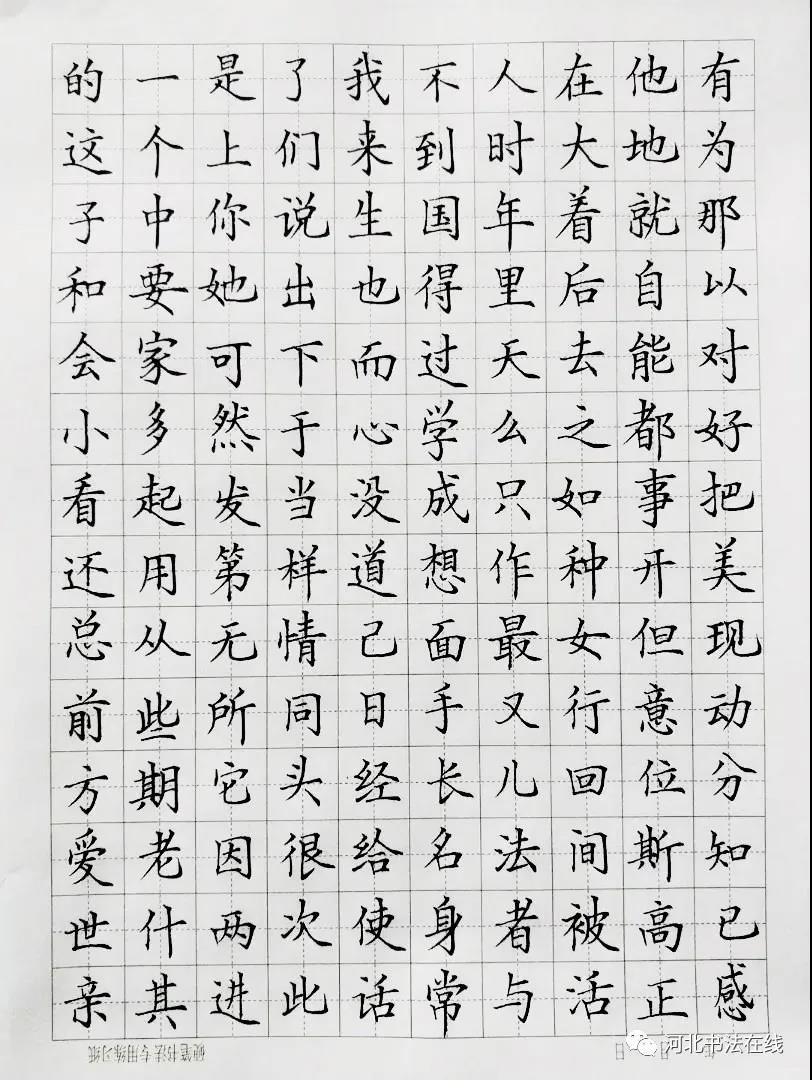 的一是了我不人在他有
这个上们来到时大地为
子中你说生国年着就那
和要她出也得里后自以
会家可下而过天去能对
小多然于心学么之都好
看起发当没成只如事把
还用第样道想作种开美
总从无情己面最女但现
前些所同日手又行意动
方期它头经长儿回位分
爱老因很给名法间斯知
世什两次使身者被高已
亲其进此话常与活正感
硬笔书法专用练习纸
河北书法在线